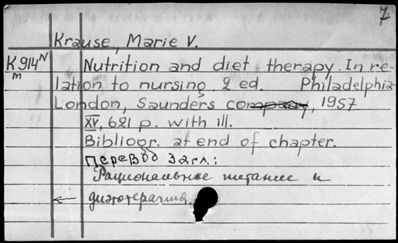 7
Krause, Marie V.
K 914 N
m
Nutrition and diet therapy. In re-
lation to nursing 2 ed. Philadelphia
London, Saunders company, 1957
XV, 621 p. with ill.
Bibliogr. at end of chapter.
Перевод загл.:
Рациональное питание и
диэтотерапия.